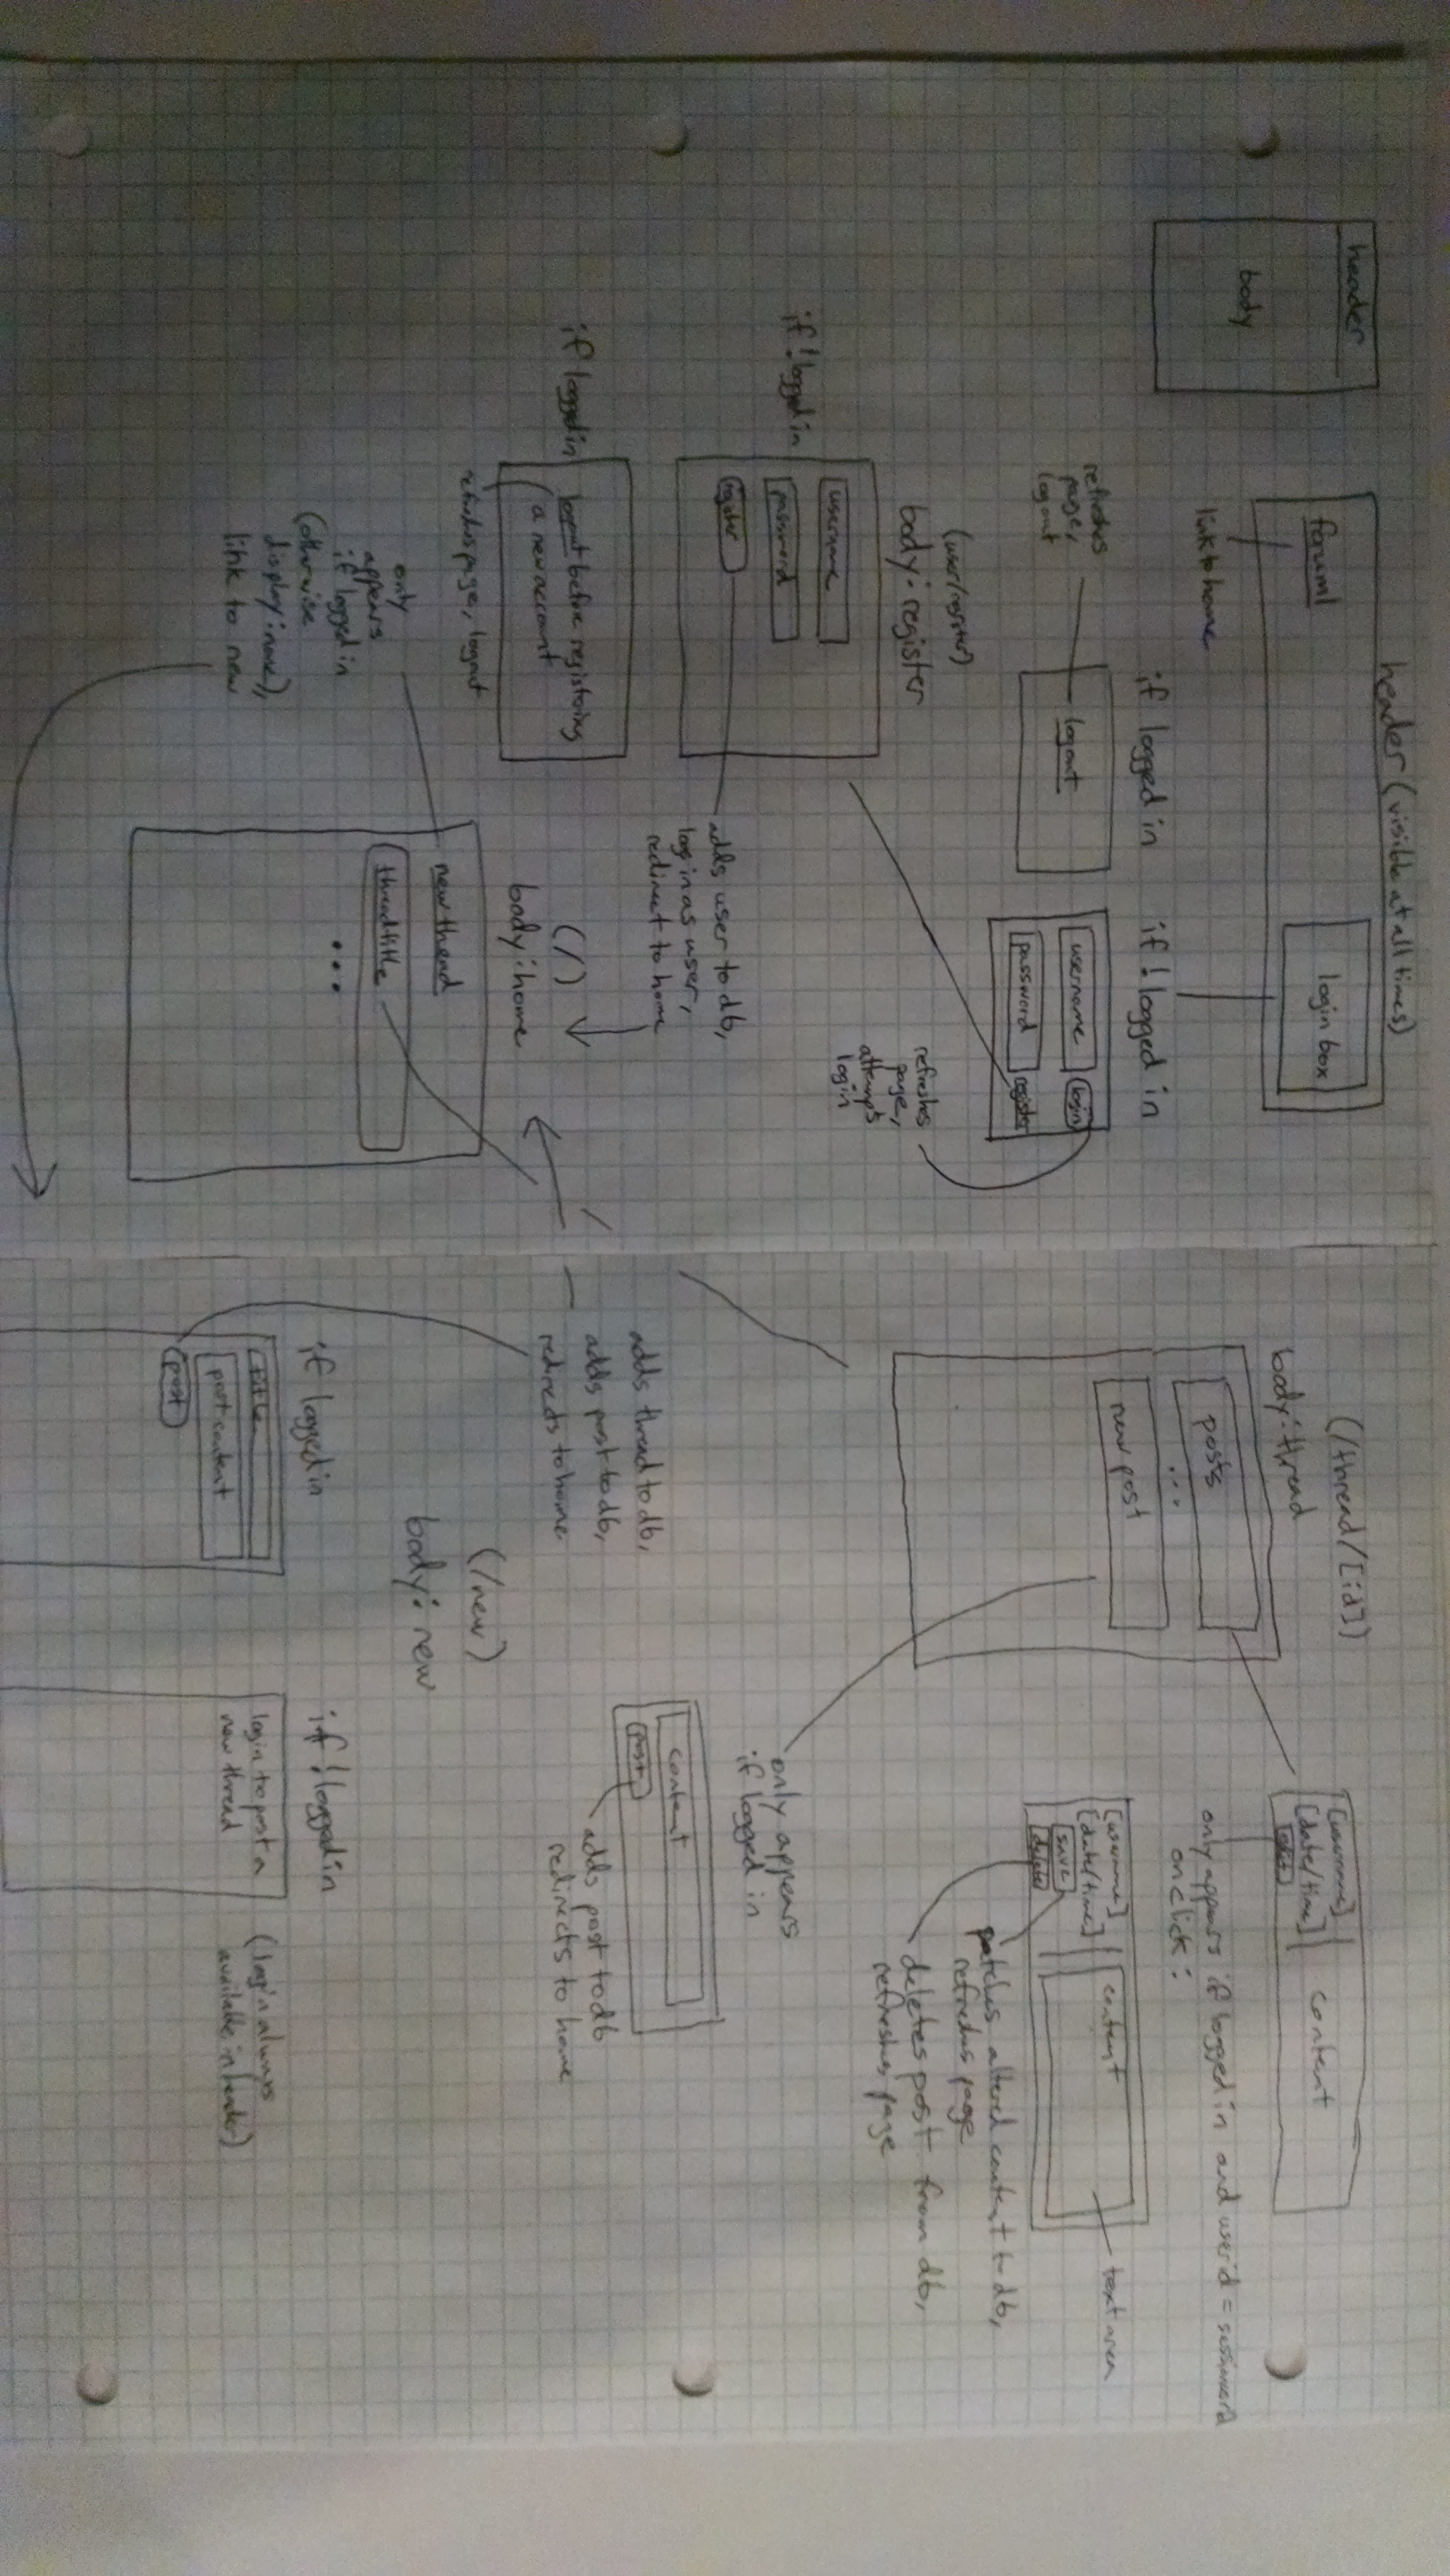 header
body
header (visible at all times)
forum1
login box
link to home
if logged in
if !logged in
logout
refreshes
page,
logout
username
login
password
register
refreshes
page,
attempts
login
(user/register)
body: register
if !logged in
username
password
register
adds user to db,
login as user,
redirect to home
if logged in
logout before registering
a new account
refreshes page, logout
(/)
body: home
new thread
thread title
...
only
appears
if logged in
(otherwise
display: none),
link to new
(/thread/[id])
body: thread
posts
...
new post
[username]
[date/time]
edit
content
only appears if logged in and userid =
onclick:
[username]
[date/time]
save
delete
content
text area
patches altered content to db,
refreshes page
deletes post from db,
refreshes page
only appears
if logged in
content
post
adds post to db
redirects to home
adds thread to db,
adds post to db,
redirects to home
(/new)
body: new
if logged in
title
post content
post
if !logged in
login to post a
new thread
(login always
available in header)